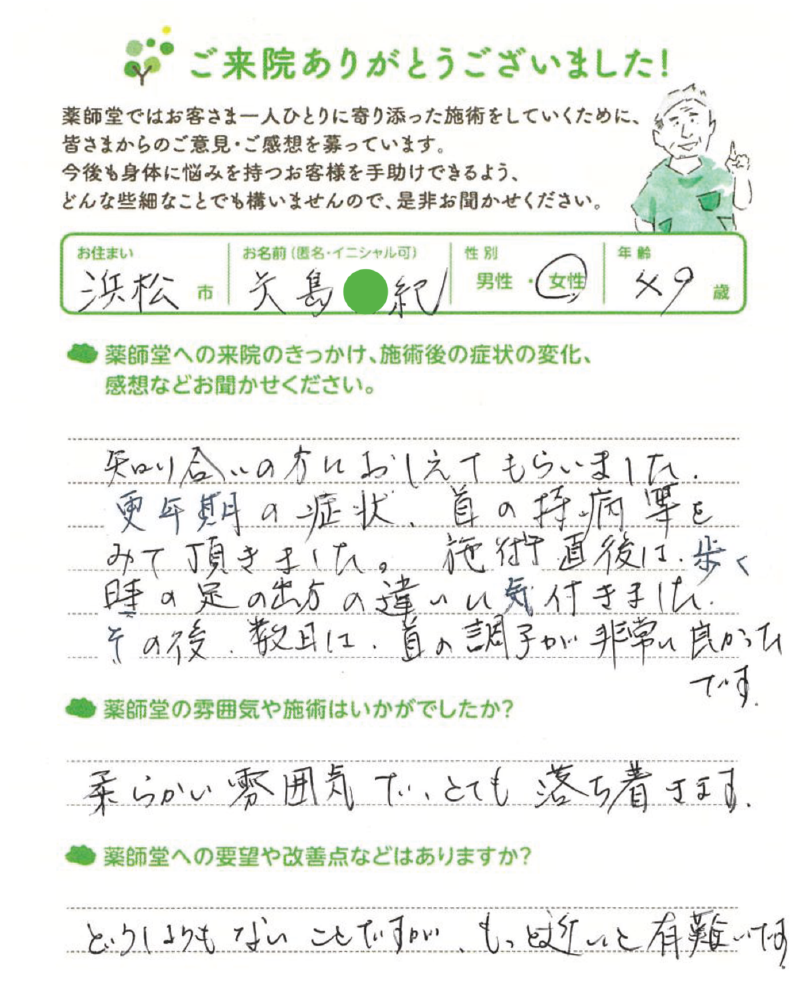 ご来院ありがとうございました!
薬師堂ではお客さま一人ひとりに寄り添った施術をしていくために、
皆さまからのご意見・ご感想を募っています。
今後も身体に悩みを持つお客様を手助けできるよう、
どんな些細なことでも構いませんので、是非お聞かせください。
お住まい お名前(匿名・イニシャル可) 性別 年齢
浜松 市 矢島 紀 男性 ・ 女性 49 歳
薬師堂への来院のきっかけ、施術後の症状の変化、
感想などお聞かせください。
知り合いの方におしえてもらいました.
更年期の症状、首の持病等を
みて頂きました。施術直後は、歩く
時の足の出方の違いに気付きました.
その後、数日は、首の調子が非常に良かった
です.
薬師堂の雰囲気や施術はいかがでしたか?
柔らかい雰囲気で、とても落ち着きます.
薬師堂への要望や改善点などはありますか?
どうしようもないことですが、もっと近いと有難いです.